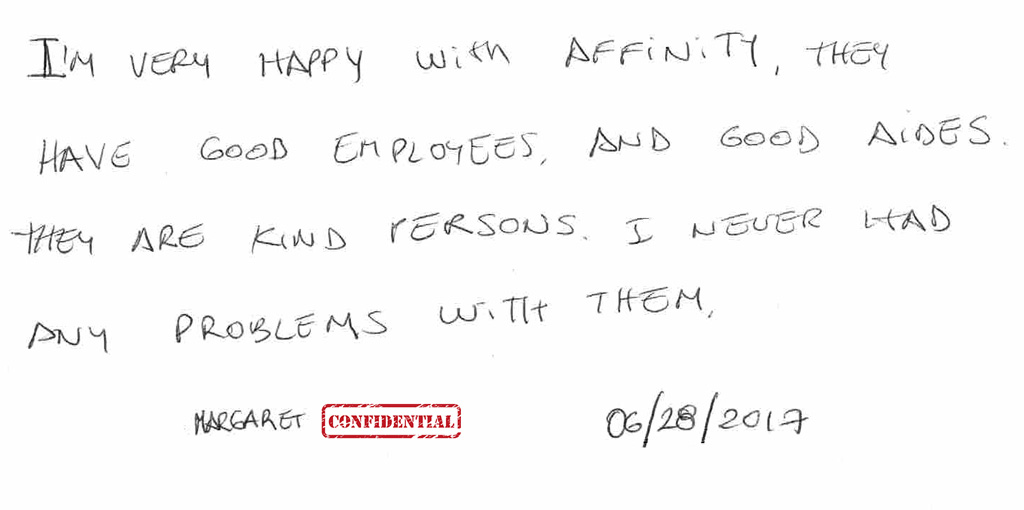 I'M VERY HAPPY WITH AFFINITY, THEY
HAVE GOOD EMPLOYEES, AND GOOD AIDES.
THEY ARE KIND PERSONS. I NEVER HAD
ANY PROBLEMS WITH THEM,
MARGARET CONFIDENTIAL 06/28/2017